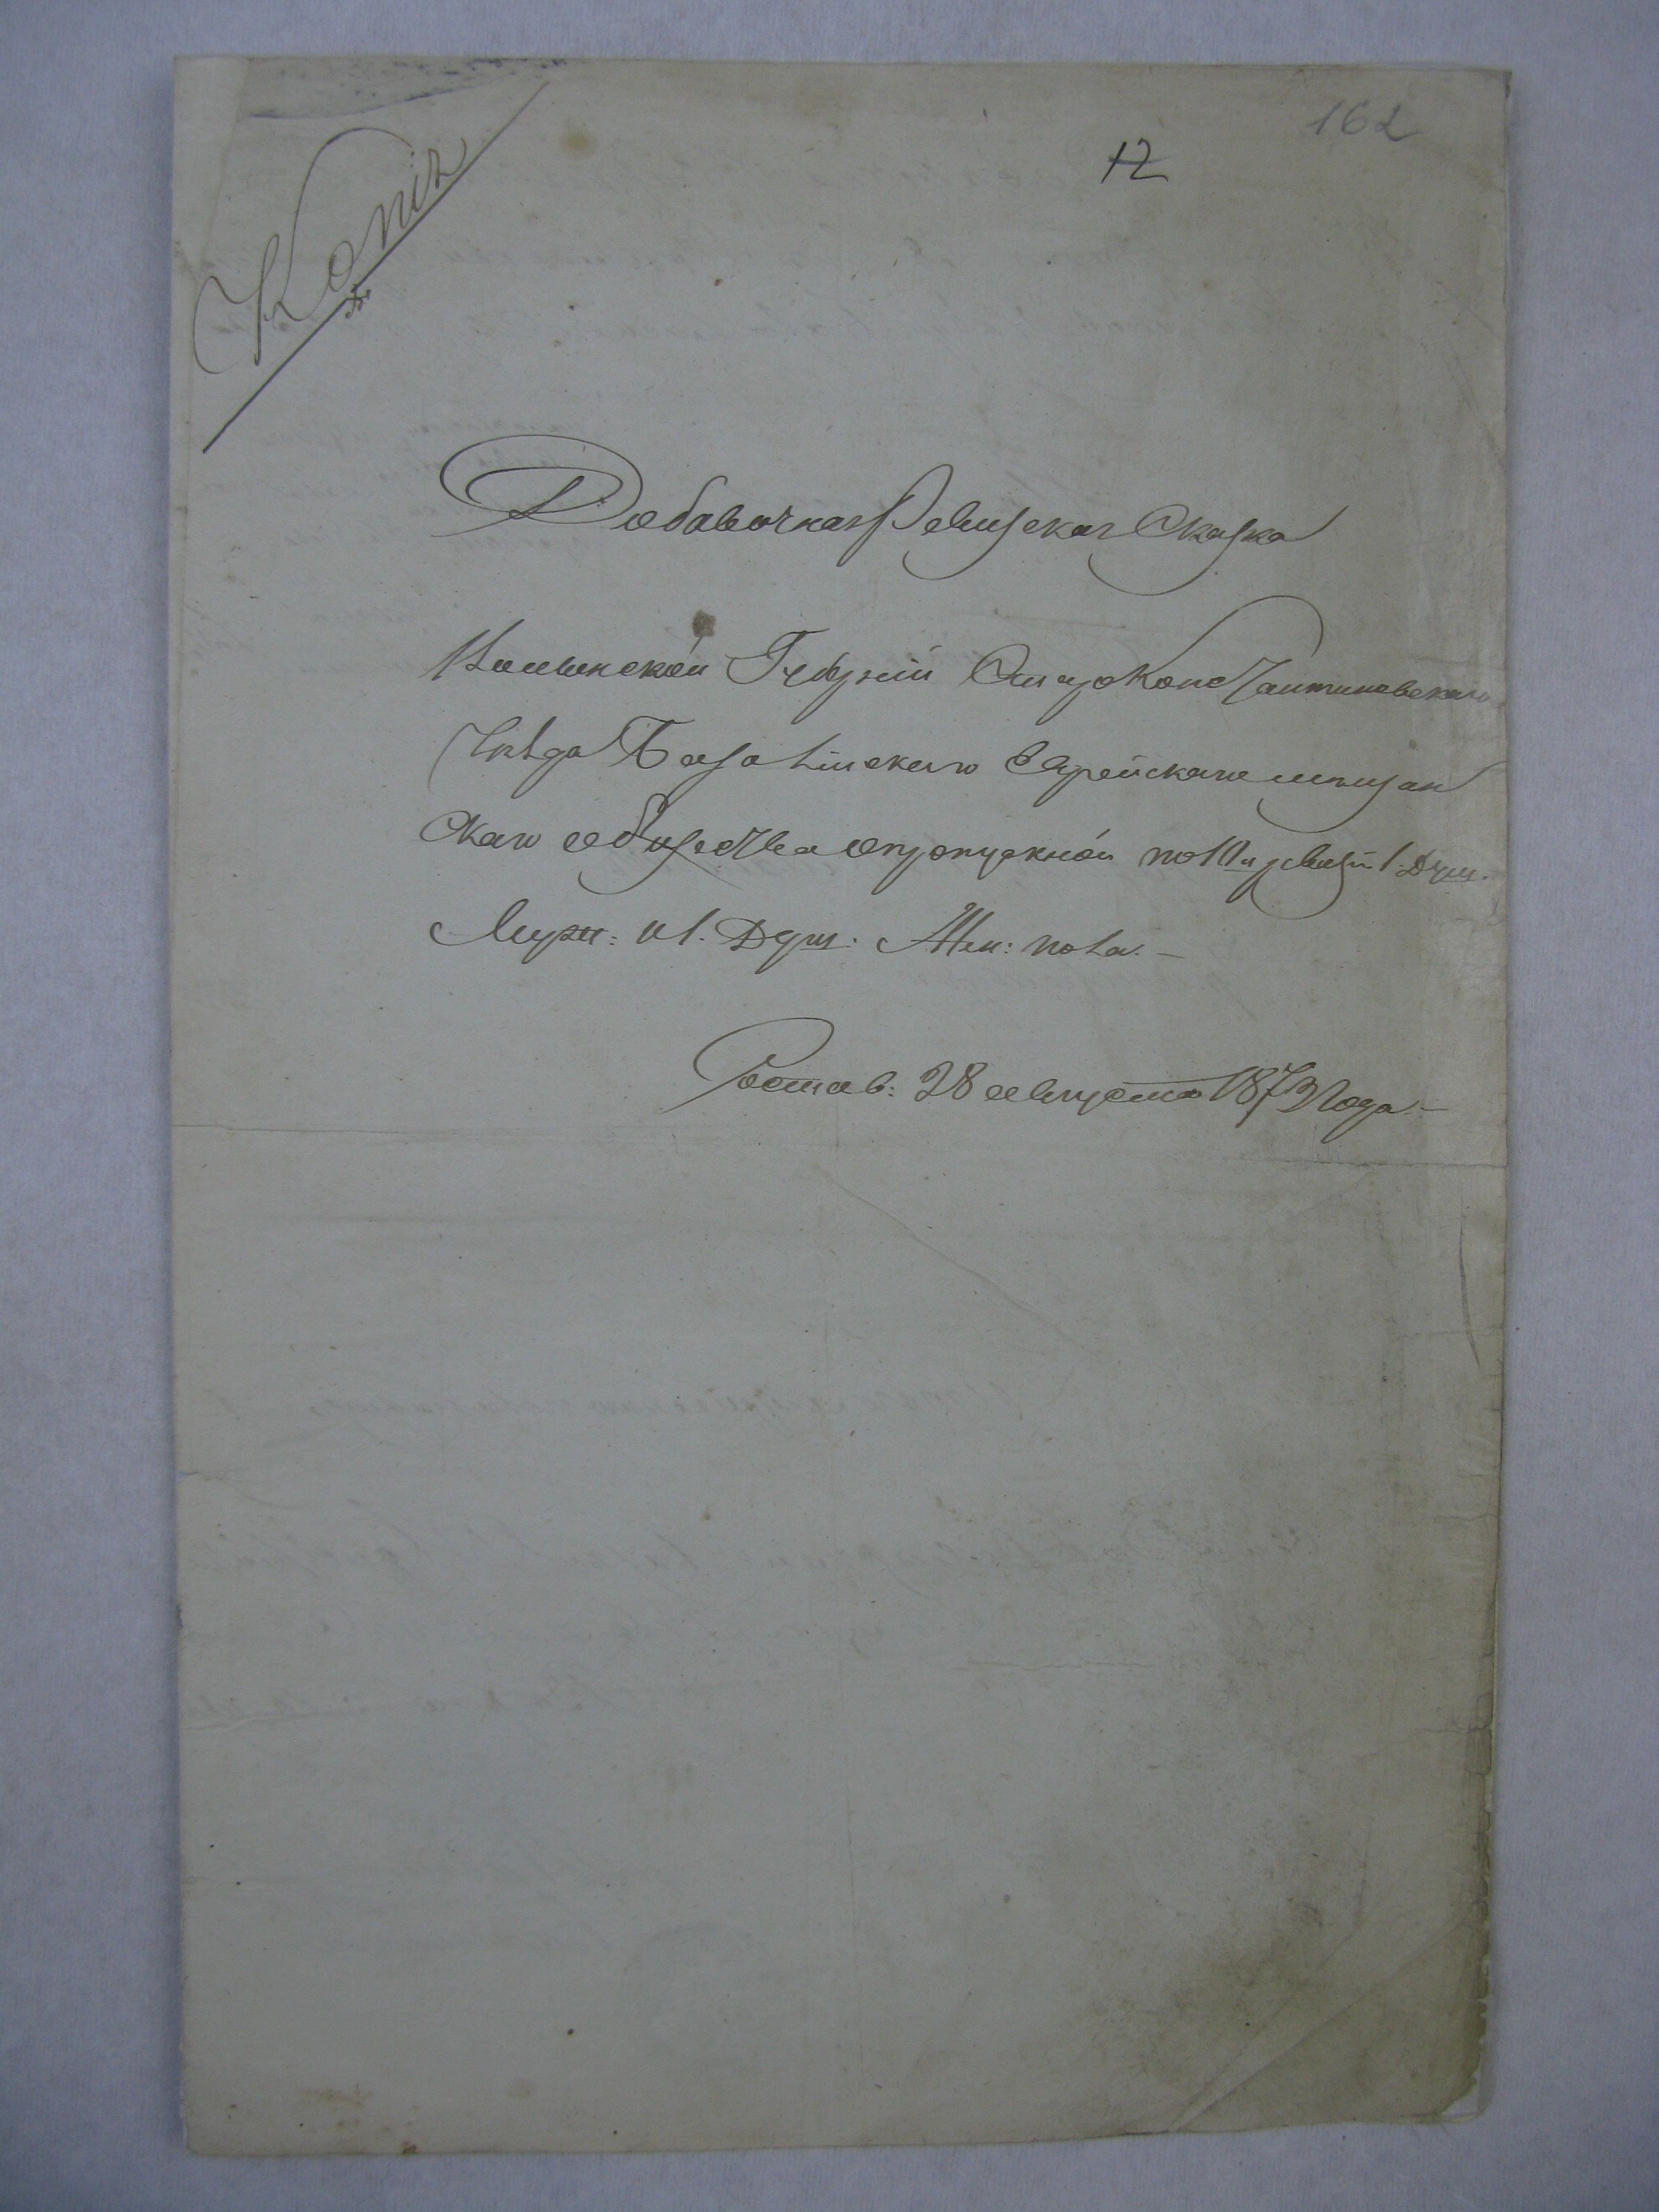 162
12
Копія
Добавочная Ревизская Сказка
Волынской Губерніи Старо Константиновскаго
Уѣзда Базалійскаго Еврейскаго мѣщан
скаго общества о пропускной по 10й ревизіи 1. Душ.
Муж: и 1. Душ: Жен: пола. —
Состав: 28 августа 1873 года. —